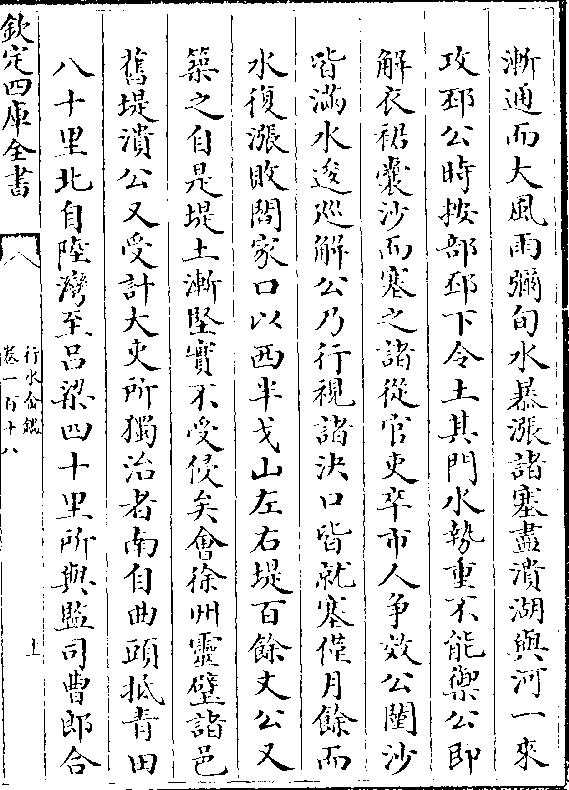 漸通而大風雨彌旬水暴漲諸塞盡潰湖與河一來
攻邳公時按部邳下令土其門水勢重不能禦公即
解衣裾囊沙而塞之諸從官吏卒市人爭效公闉沙
皆滿水逡巡解公乃行視諸決口皆就塞僅月餘而
水復漲敗閻家口以西半戈山左右堤百餘丈公又
築之自是堤土漸堅實不受侵矣會徐州靈璧諸邑
舊堤潰公又受計大吏所獨治者南自曲頭抵青田
八十里北自陸灣至呂梁四十里所與監司曹郎合
欽定四庫全書
行水金鑑
卷一百十八
土